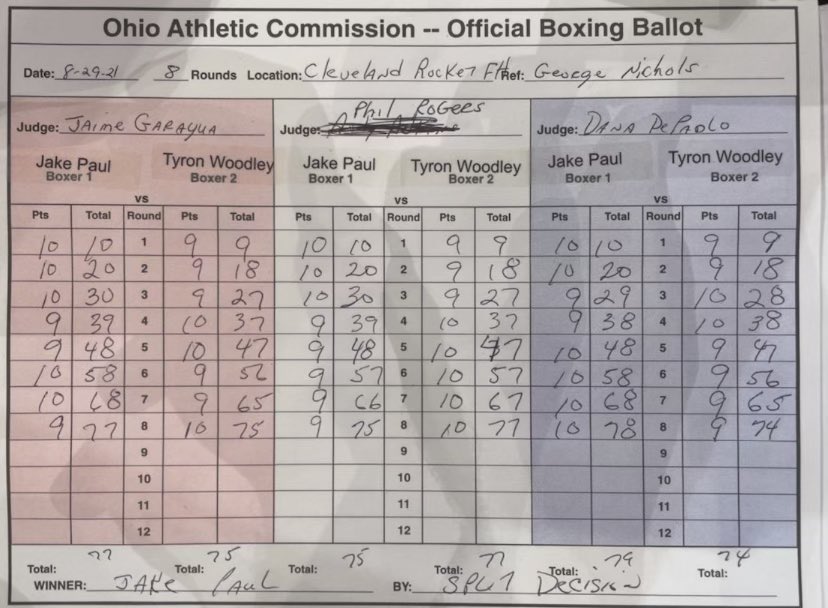 Ohio Athletic Commission -- Official Boxing Ballot
Date: 8-29-21 8 Rounds Location: Cleveland Rocket FH Ref: George Nichols
Judge: Jaime Garayua Judge: Phil Rogers Judge: Dana DePaolo
Jake Paul Tyron Woodley Jake Paul Tyron Woodley Jake Paul Tyron Woodley
Boxer 1 Boxer 2 Boxer 1 Boxer 2 Boxer 1 Boxer 2
vs vs vs
Pts Total Round Pts Total Pts Total Round Pts Total Pts Total Round Pts Total
10 10 1 9 9 10 10 1 9 9 10 10 1 9 9
10 20 2 9 18 10 20 2 9 18 10 20 2 9 18
10 30 3 9 27 10 30 3 9 27 9 29 3 10 28
9 39 4 10 37 9 39 4 10 37 9 38 4 10 38
9 48 5 10 47 9 48 5 10 47 10 48 5 9 47
10 58 6 9 56 9 57 6 10 57 10 58 6 9 56
10 68 7 9 65 9 66 7 10 67 10 68 7 9 65
9 77 8 10 75 9 75 8 10 77 10 78 8 9 74
9 9 9
10 10 10
11 11 11
12 12 12
Total: 77 Total: 75 Total: 75 Total: 77 Total: Total: 74
WINNER: Jake Paul BY: Split Decision